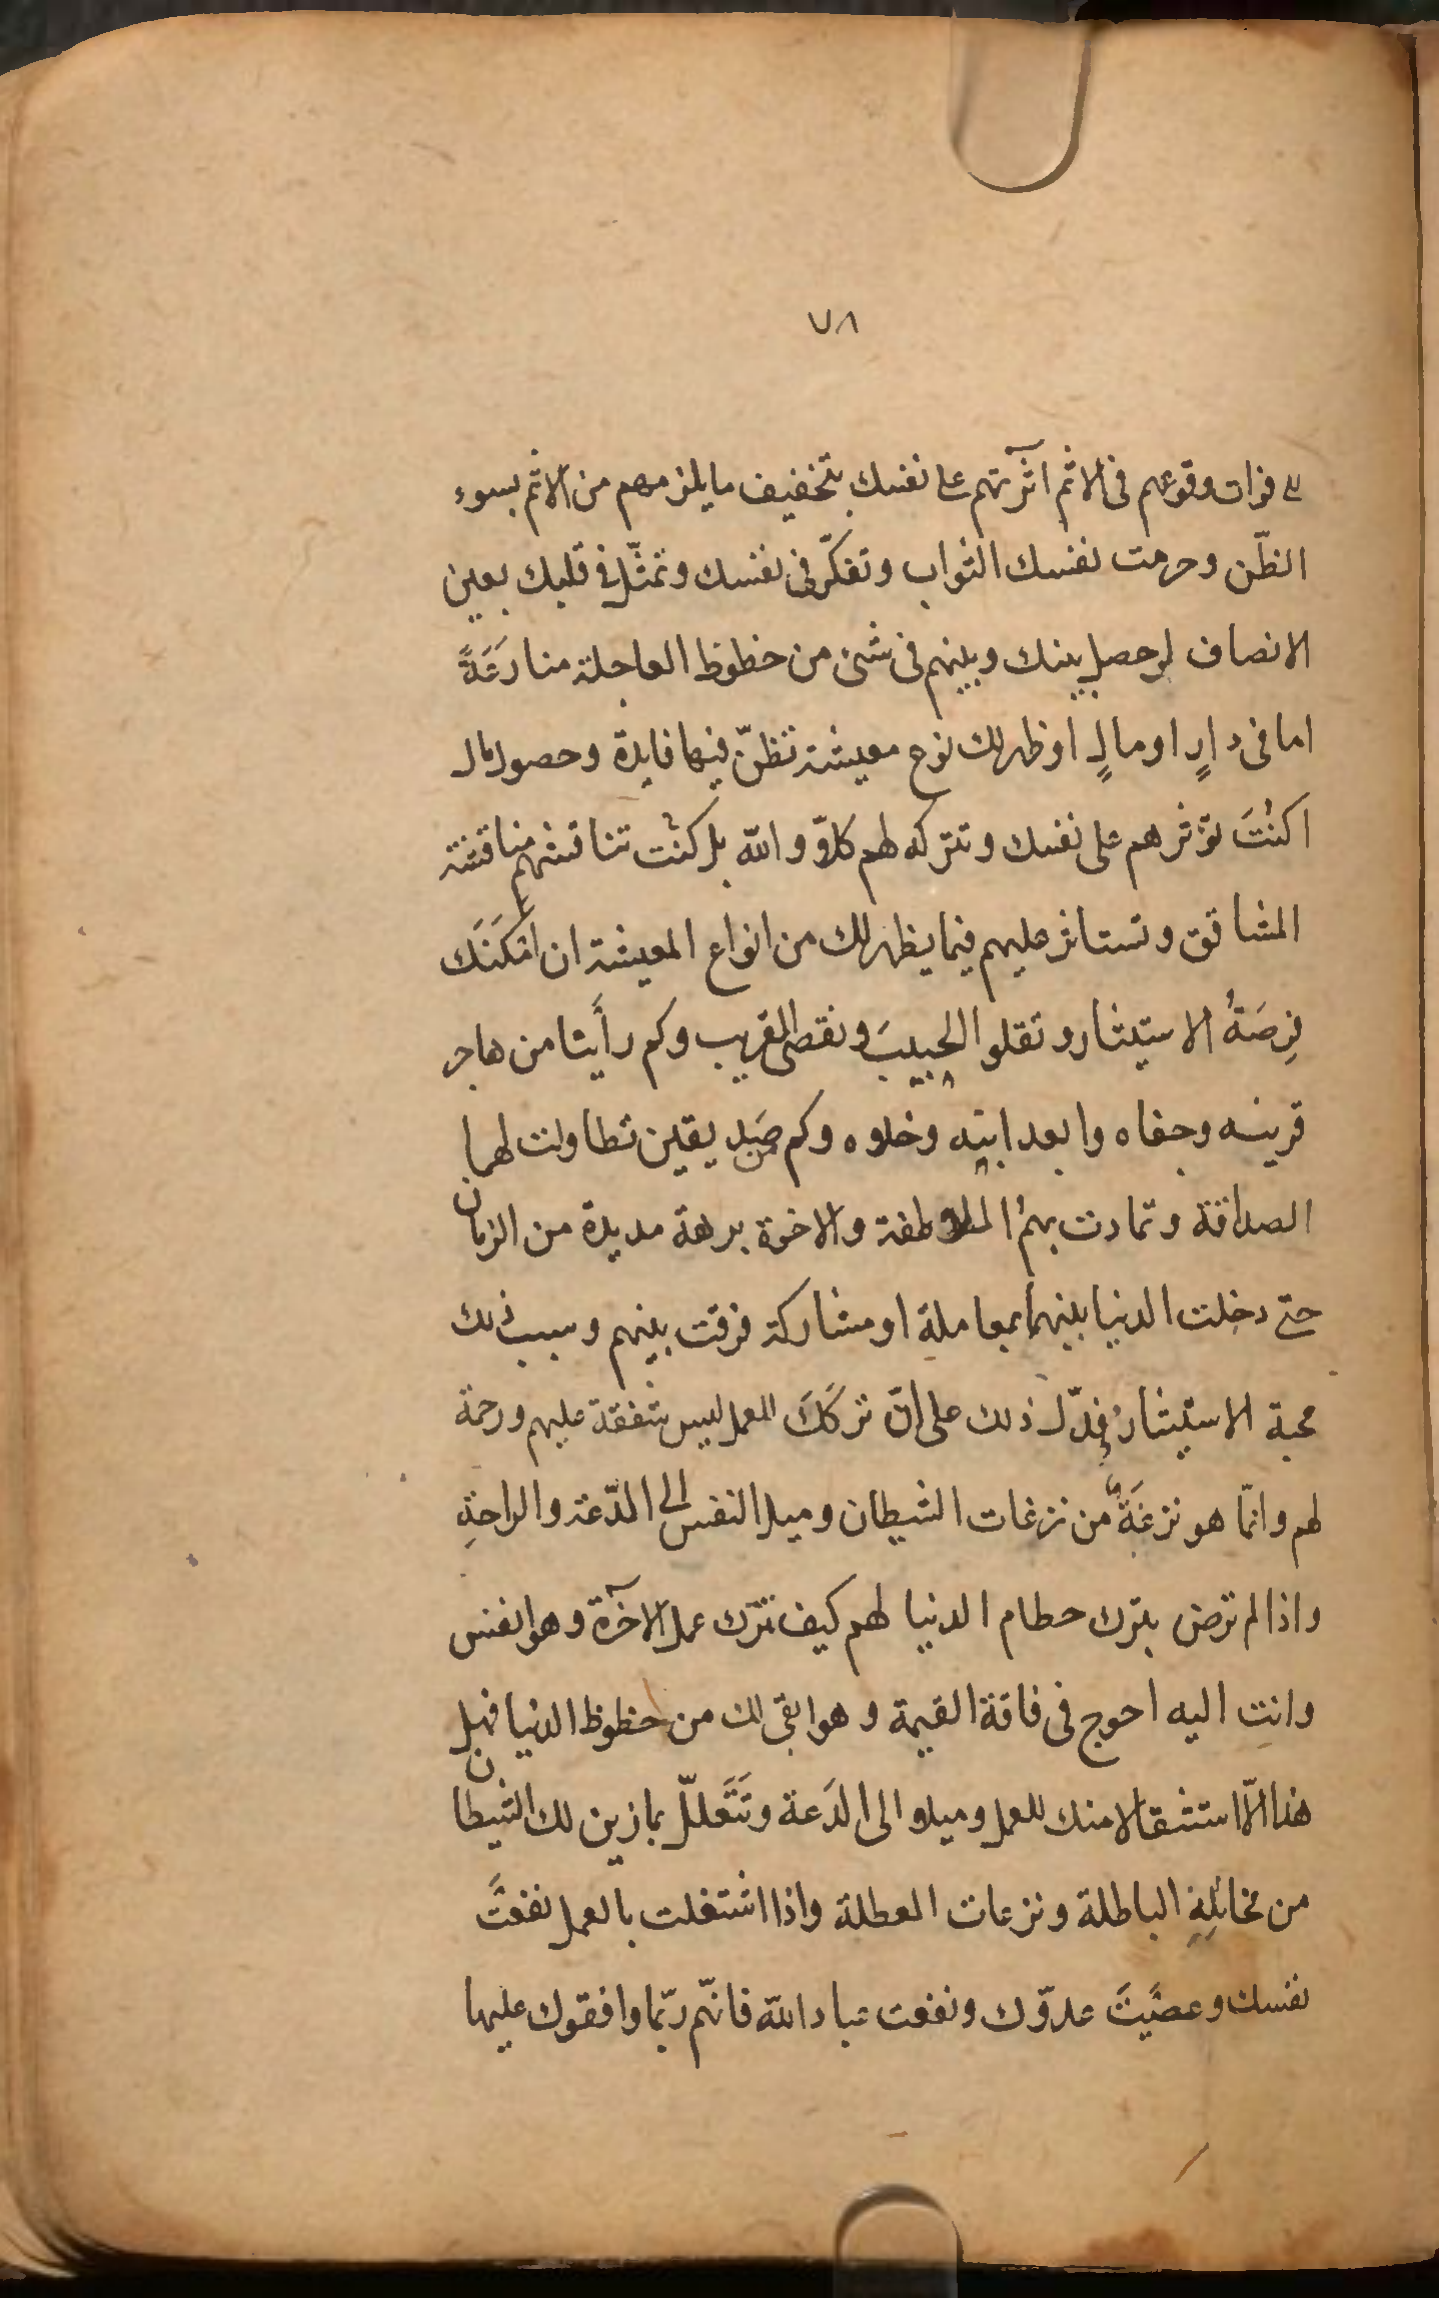 ٧٨
لى فوات وقوعهم فى الاثم آثرتهم على نفسك بتخفيف ما يلزمهم من الاثم بسوء
الظّن وحرمت نفسك الثواب وتفكّر فى نفسك وتمثّل فى قلبك بعين
الانصاف لو حصل بينك وبينهم فى شئ من حظوظ العاجلة منازعَةً
اما فى دارٍ او مالٍ او ظهر لك نوع معيشة تظنّ فيها فايدة وحصول مال
اكنتَ تؤثرهم على نفسك وتتركه لهم كلاّ والله بل كنت تناقشهم مناقشة
المشاقق وتستاثر عليهم فيما يظهر لك من انواع المعيشة ان امكَنَك
فرصَةُ الاستيثار وتقلوا الحبيبَ ونقصى القريب وكم رأينا من هاجر
قرينه وجفاه وابعد ابنه وخلاه وكم صديقين تطاولت لهما
الصداقة وتمادت بهمُ الملاطفة والاخوة برهة مديدة من الزمان
حتى دخلت الدنيا بينهما بمعاملة او مشاركة فرقت بينهم وسبب ذلك
محبة الاستيثار فدّل ذلك على انّ تركَكَ العمل ليس شفقة عليهم ورحمة
لهم وانمّا هو نزغَةٌ من نزغات الشيطان وميل النفس الى الدّعة والراحةِ
واذا لم ترض بترك حطام الدنيا لهم كيف تترك عمل الآخرة وهو انفس
وانت اليه احوج فى فاقة القيمة وهو ابقى لك من حظوظ الدنيا فهل
هذا الاّ استثقالا منك للعمل وميلا الى الدَعة وتَتَعلّل بما زين لك الشيطان
من مخائلِهِ الباطلة ونزعات العطلة واذا اشتغلت بالعمل نفعتَ
نفسك وعصَيْتَ عدوّك ونفعت عباد الله فانّهم ربّما وافقوك عليها